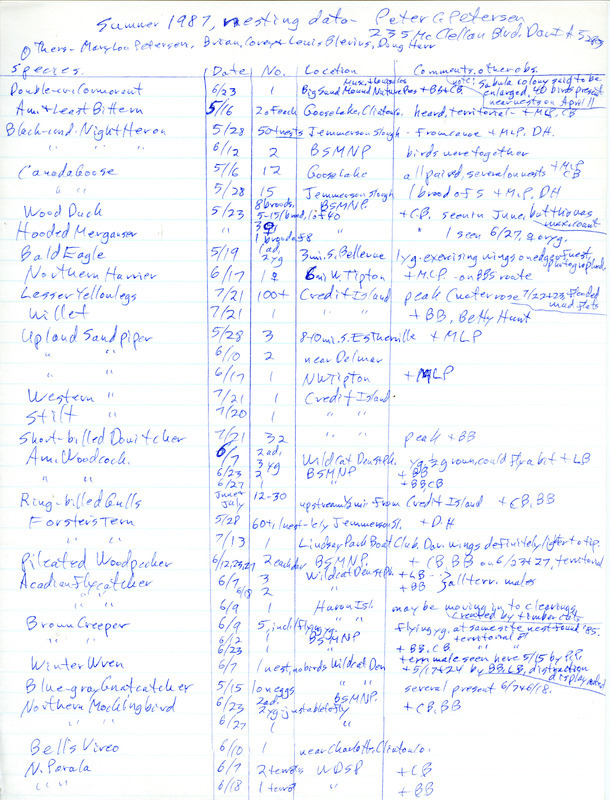 Summer 1987, nesting data - Peter C. Petersen
235 McClellan Blvd. Dav. IA 52803
Others - Mary Lou Petersen, Brian, Corey + Louis Blevins, Doug Herr
Species. Date No. Location Comments, other obs.
Double-cr. Cormorant 6/23 1 Big Sand Mound Nature Pres + BB+CB note: Sabula colony said to be enlarged, 40 birds present near nests on April 11
Am. + Least Bittern 5/16 2 of each Goose Lake, Clinton Co. heard, territorial - + MLP, CB
Black-cr. Night Heron 5/28 50+ nests Jemmerson Slough - From canoe + MLP, DH.
6/12 2 BSMNP birds were together
Canada Goose 5/16 12 Goose Lake all paired, several on nests + MLP CB
" " 5/28 15 Jemmerson Slough 1 brood of 5 + MLP, DH
Wood Duck 5/23 8 broods, 5-15/brood, tot 40 BSMNP. + CB. seen in June, but this was max. count
Hooded Merganser " 3♀ 1 brood of 8 " " 1 seen 6/27, ♀ or yg.
Bald Eagle 5/19 1 ad, 2 yg 3 mi. S. Bellevue 1 yg. exercising wings on edge of nest,
Northern Harrier 6/17 1♀ 6 mi W Tipton + MLP - on BBS route
Lesser Yellowlegs 7/21 100+ Credit Island peak (water rose 7/22+23, flooded mud flats
Willet 7/21 1 " " + BB, Betty Hunt
Upland Sandpiper 5/28 3 8-10 mi. S. Estherville + MLP
" " 6/10 2 near Delmar
" " 6/17 1 NW Tipton + MLP
Western " 7/21 1 Credit Island
Stilt " 7/20 1 " "
Short-billed Dowitcher 7/21 32 " " peak + BB
Am. Woodcock. 6/7 2 ad, 3 yg Wildcat Den St. Pk. yg. ½ grown, could fly a bit + LB
6/23 2 BSMNP + BB
6/27 1 " + BB CB
Ring-billed Gulls June + July 12-30 upstream ½ mi from Credit Island + CB, BB
Forsters Tern 5/28 60+, 1 nest - Jemmerson Sl. + DH
" " 7/13 1 Lindsay Park Boat Club, Dav. wings definitely lighter to tip.
Pileated Woodpecker 6/12,23,27 2 each day BSMNP. + CB, BB on 6/23+27, territorial
Acadian Flycatcher 6/7 3 Wildcat Den St Pk + LB - 3 all terr. males
" " 6/18 2 " + BB
" " 6/9 1 Huron Isl. may be moving in to clearings created by timber cuts
Brown Creeper 6/9 5, incl flying yg " flying yg. at same site nest found '85.
" " 6/12 1 BSMNP territorial ♂
" " 6/23 1 " + BB. CB
Winter Wren 6/7 1 nest, no birds Wildcat Den terr. male seen here 5/15 by PCP, + 5/17+24 by BB, CB, distraction display noted
Blue-gray Gnatcatcher 5/15 1 on eggs " several present 6/7+6/18.
Northern Mockingbird 6/23 2 ad. 2 yg just able to fly BSMNP. + CB, BB
" " 6/27 1 "
Bell's Vireo 6/10 1 near Charlotte, Clinton Co.
N. Parula 6/7 2 terr ♂s WDSP + CB
" " 6/18 1 terr ♂ " + BB